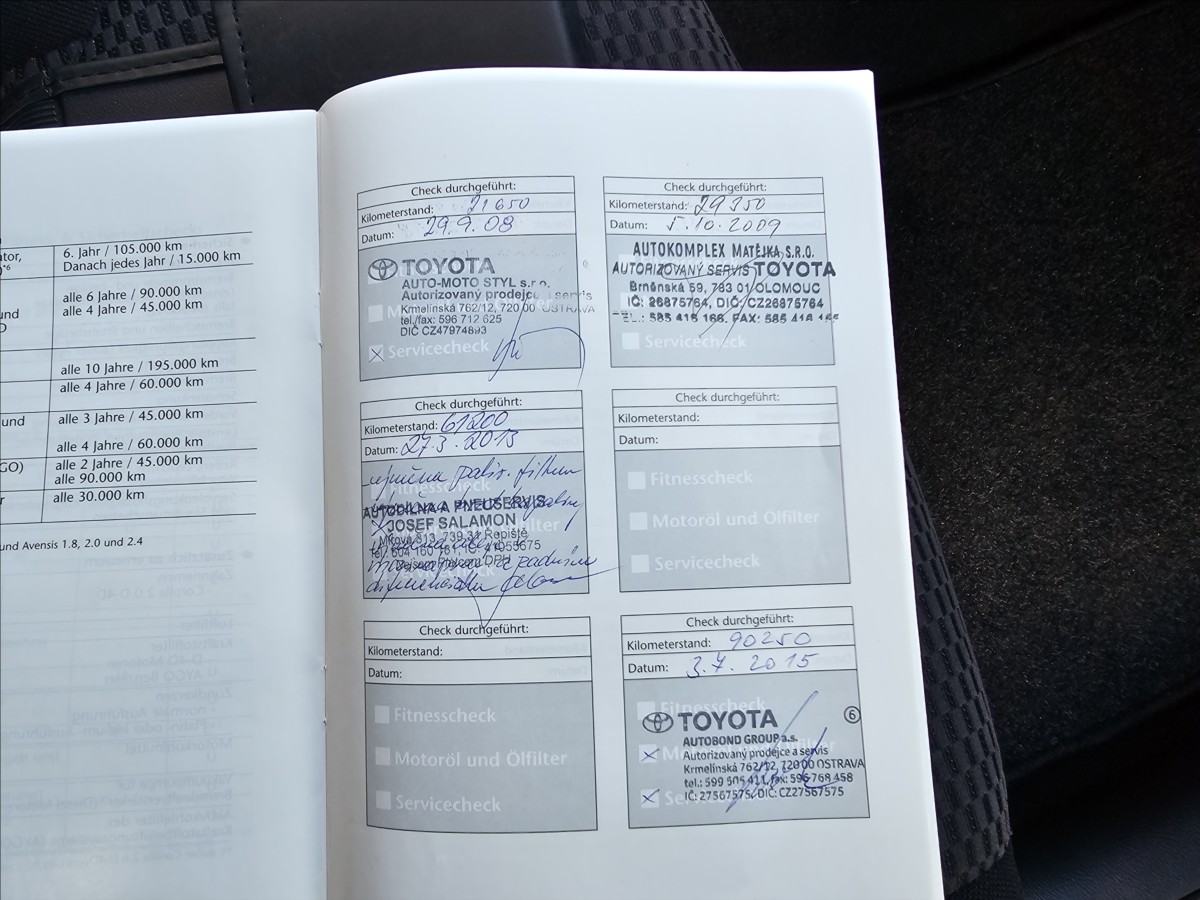 ator,
6. Jahr / 105.000 km
Danach jedes Jahr / 15.000 km
*6
alle 6 Jahre / 90.000 km
und
alle 4 Jahre / 45.000 km
alle 10 Jahre / 195.000 km
alle 4 Jahre / 60.000 km
und
alle 3 Jahre / 45.000 km
alle 4 Jahre / 60.000 km
GO)
alle 2 Jahre / 45.000 km
alle 90.000 km
alle 30.000 km
und Avensis 1.8, 2.0 und 2.4
Check durchgeführt:
Kilometerstand: 21650
Datum: 29.9.08
TOYOTA
AUTO-MOTO STYL s.r.o.
Autorizovaný prodejce a servis
Kmelínská 762/12, 720 00 OSTRAVA
tel./fax: 596 712 625
DIČ CZ47974893
Servicecheck
Check durchgeführt:
Kilometerstand: 29350
Datum: 5.10.2009
AUTOKOMPLEX MATĚJKA S.R.O.
AUTORIZOVANÝ SERVIS TOYOTA
Brněnská 59, 783 01 OLOMOUC
IČ: 26875764, DIČ: CZ26875764
TEL.: 585 416 166, FAX: 585 416
Servicecheck
Check durchgeführt:
Kilometerstand: 61200
Datum: 27.3.2013
filtru
Fitnesscheck
AUTODÍLNA A PNEUSERVIS
JOSEF SALAMON
513, 739 31 Řepiště
Check durchgeführt:
Kilometerstand:
Datum:
Fitnesscheck
Motoröl und Ölfilter
Servicecheck
Check durchgeführt:
Kilometerstand:
Datum:
Fitnesscheck
Motoröl und Ölfilter
Servicecheck
Check durchgeführt:
Kilometerstand: 90250
Datum: 3.7.2015
Fitnesscheck
TOYOTA
6
AUTOBOND GROUP a.s.
Autorizovaný prodejce a servis
Krmelínská 762/12, 720 00 OSTRAVA
tel.: 599 505 411, fax: 596 768 458
IČ: 27567575, DIČ: CZ27567575